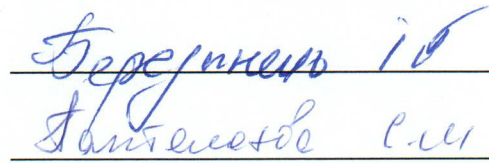 Березинець І Б
Пантелахова С М